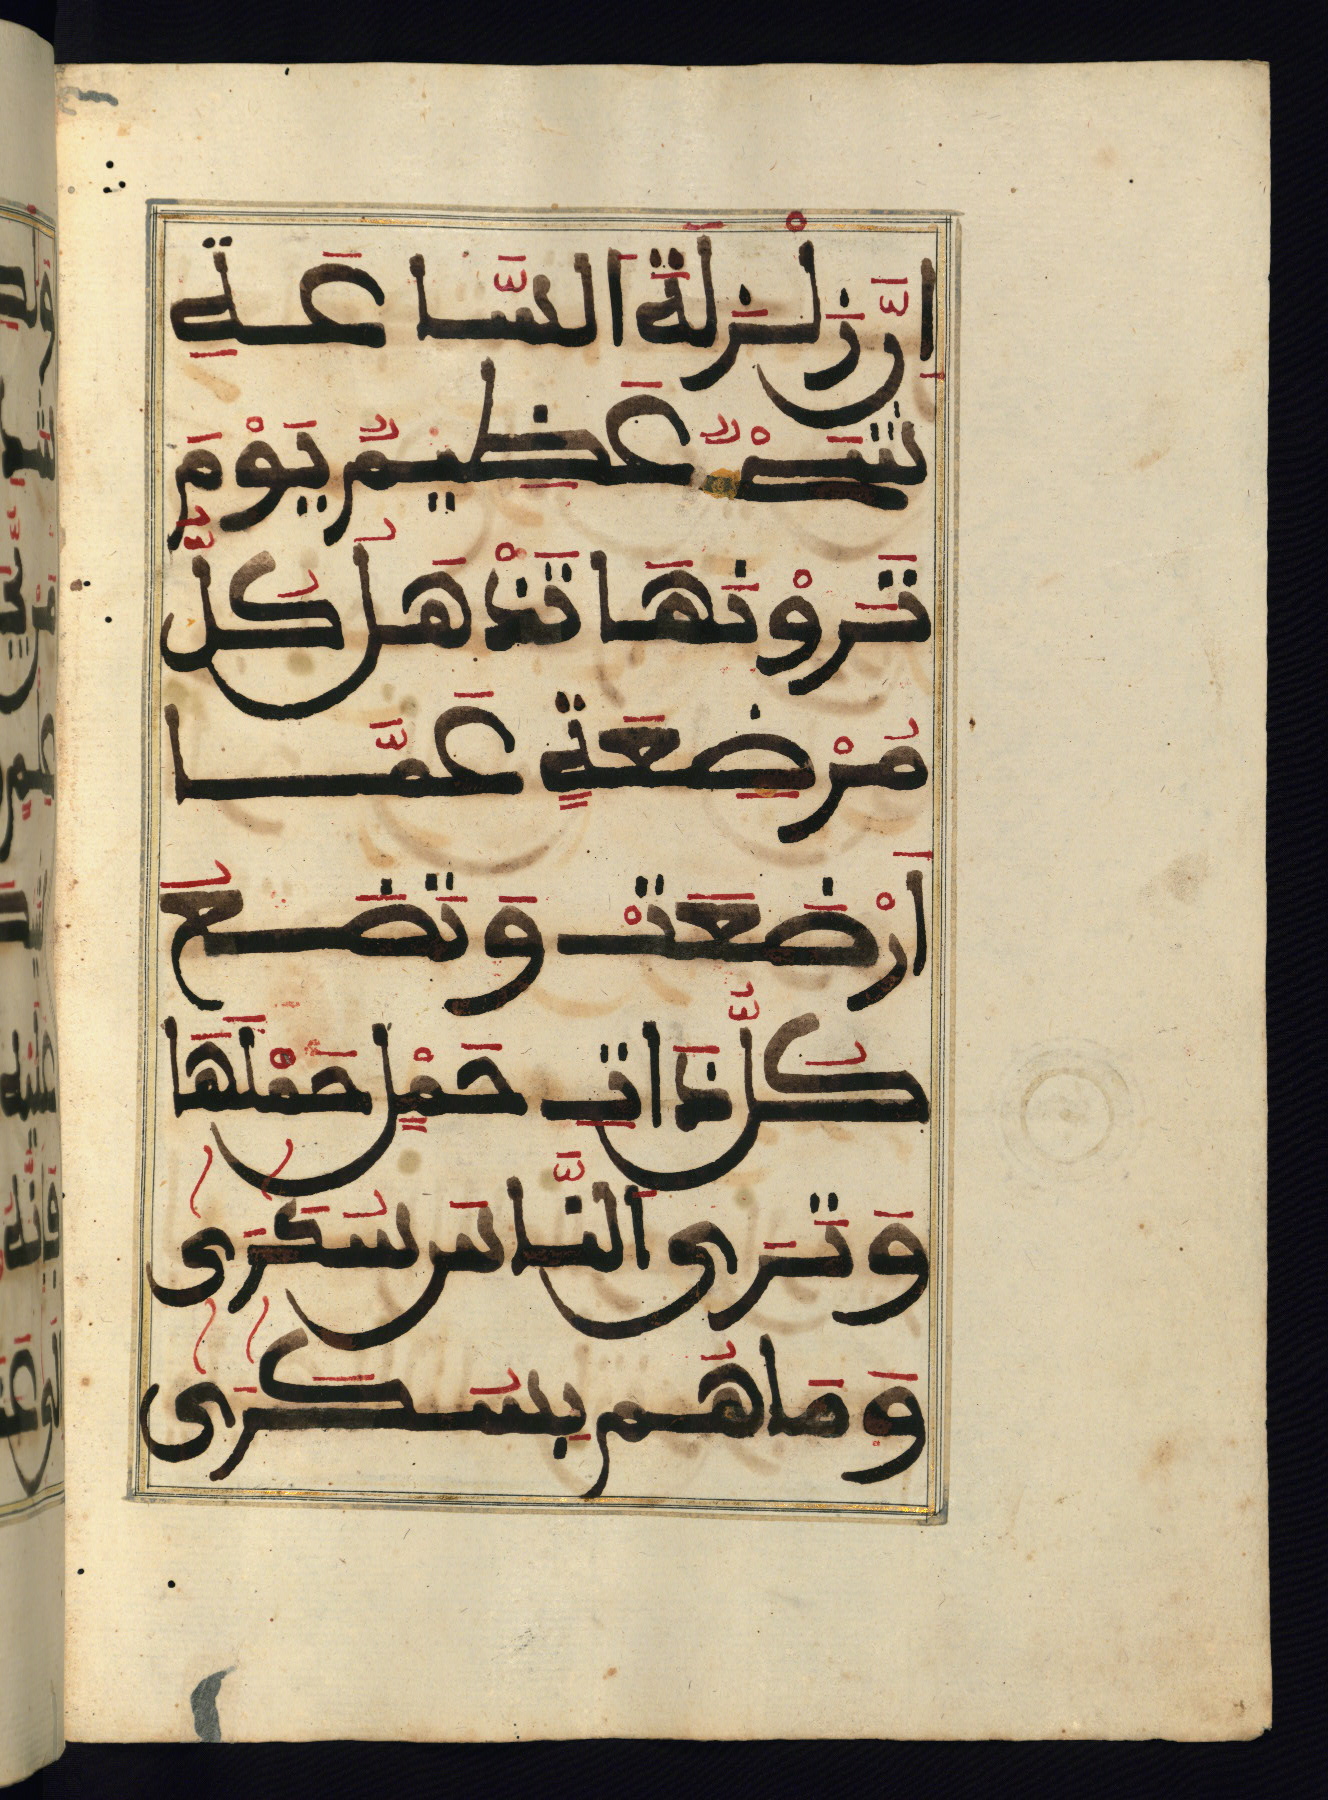 إِنَّ زَلْزَلَةَ السَّاعَةِ
شَيْءٌ عَظِيمٌ يَوْمَ
تَرَوْنَهَا تَذْهَلُ كُلُّ
مُرْضِعَةٍ عَمَّا
أَرْضَعَتْ وَتَضَعُ
كُلُّ ذَاتِ حَمْلٍ حَمْلَهَا
وَتَرَى النَّاسَ سُكَرَى
وَمَا هُم بِسُكَرَى